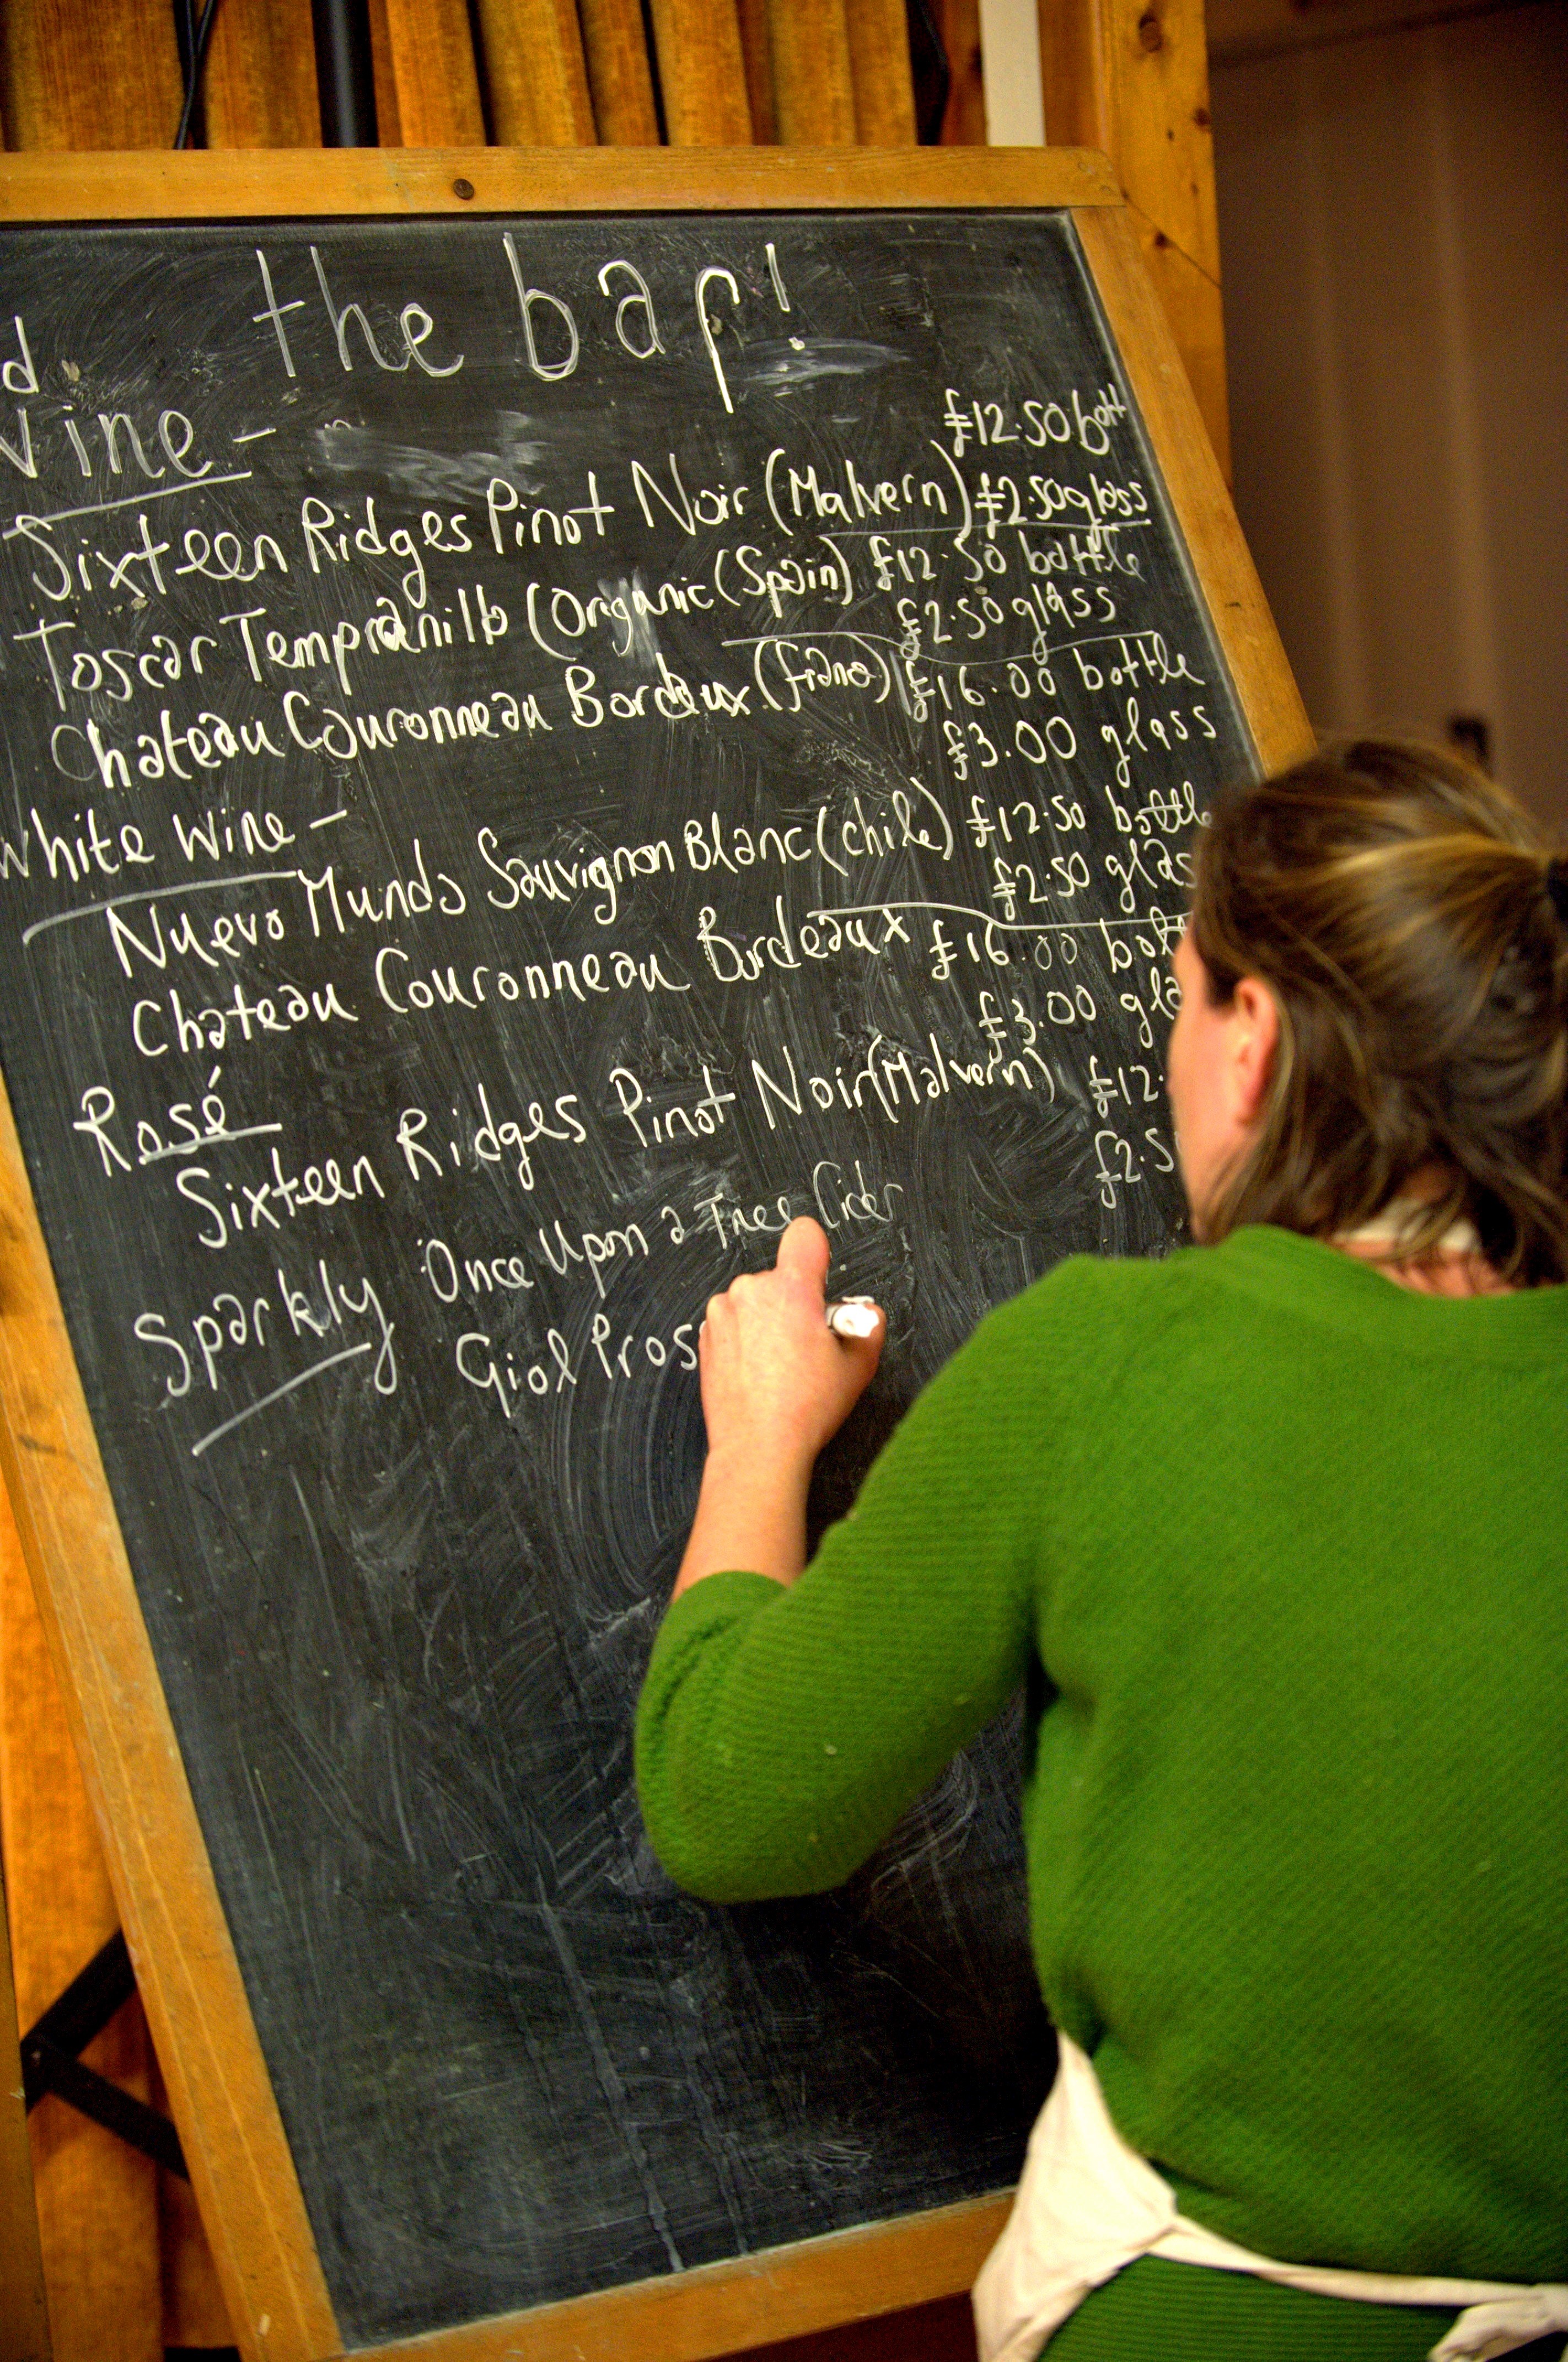 the bar!
d
Wine -
£12.50 bott
Sixteen Ridges Pinot Noir (Malvern) £2.50 glass
Toscar Tempranillo (Organic (Spain) £12.50 bottle
£2.50 glass
Chateau Couronneau Bordeaux (france) £16.00 bottle
£3.00 glass
White Wine -
Nuevo Mundo Sauvignon Blanc (chile) £12.50 bottle
£2.50 glas
Chateau Couronneau Bordeaux £16.00 bott
£3.00 gla
Rosé
Sixteen Ridges Pinot Noir (Malvern) £12.
£2.5
Sparkly Once Upon a Tree Cider
Giol Pros